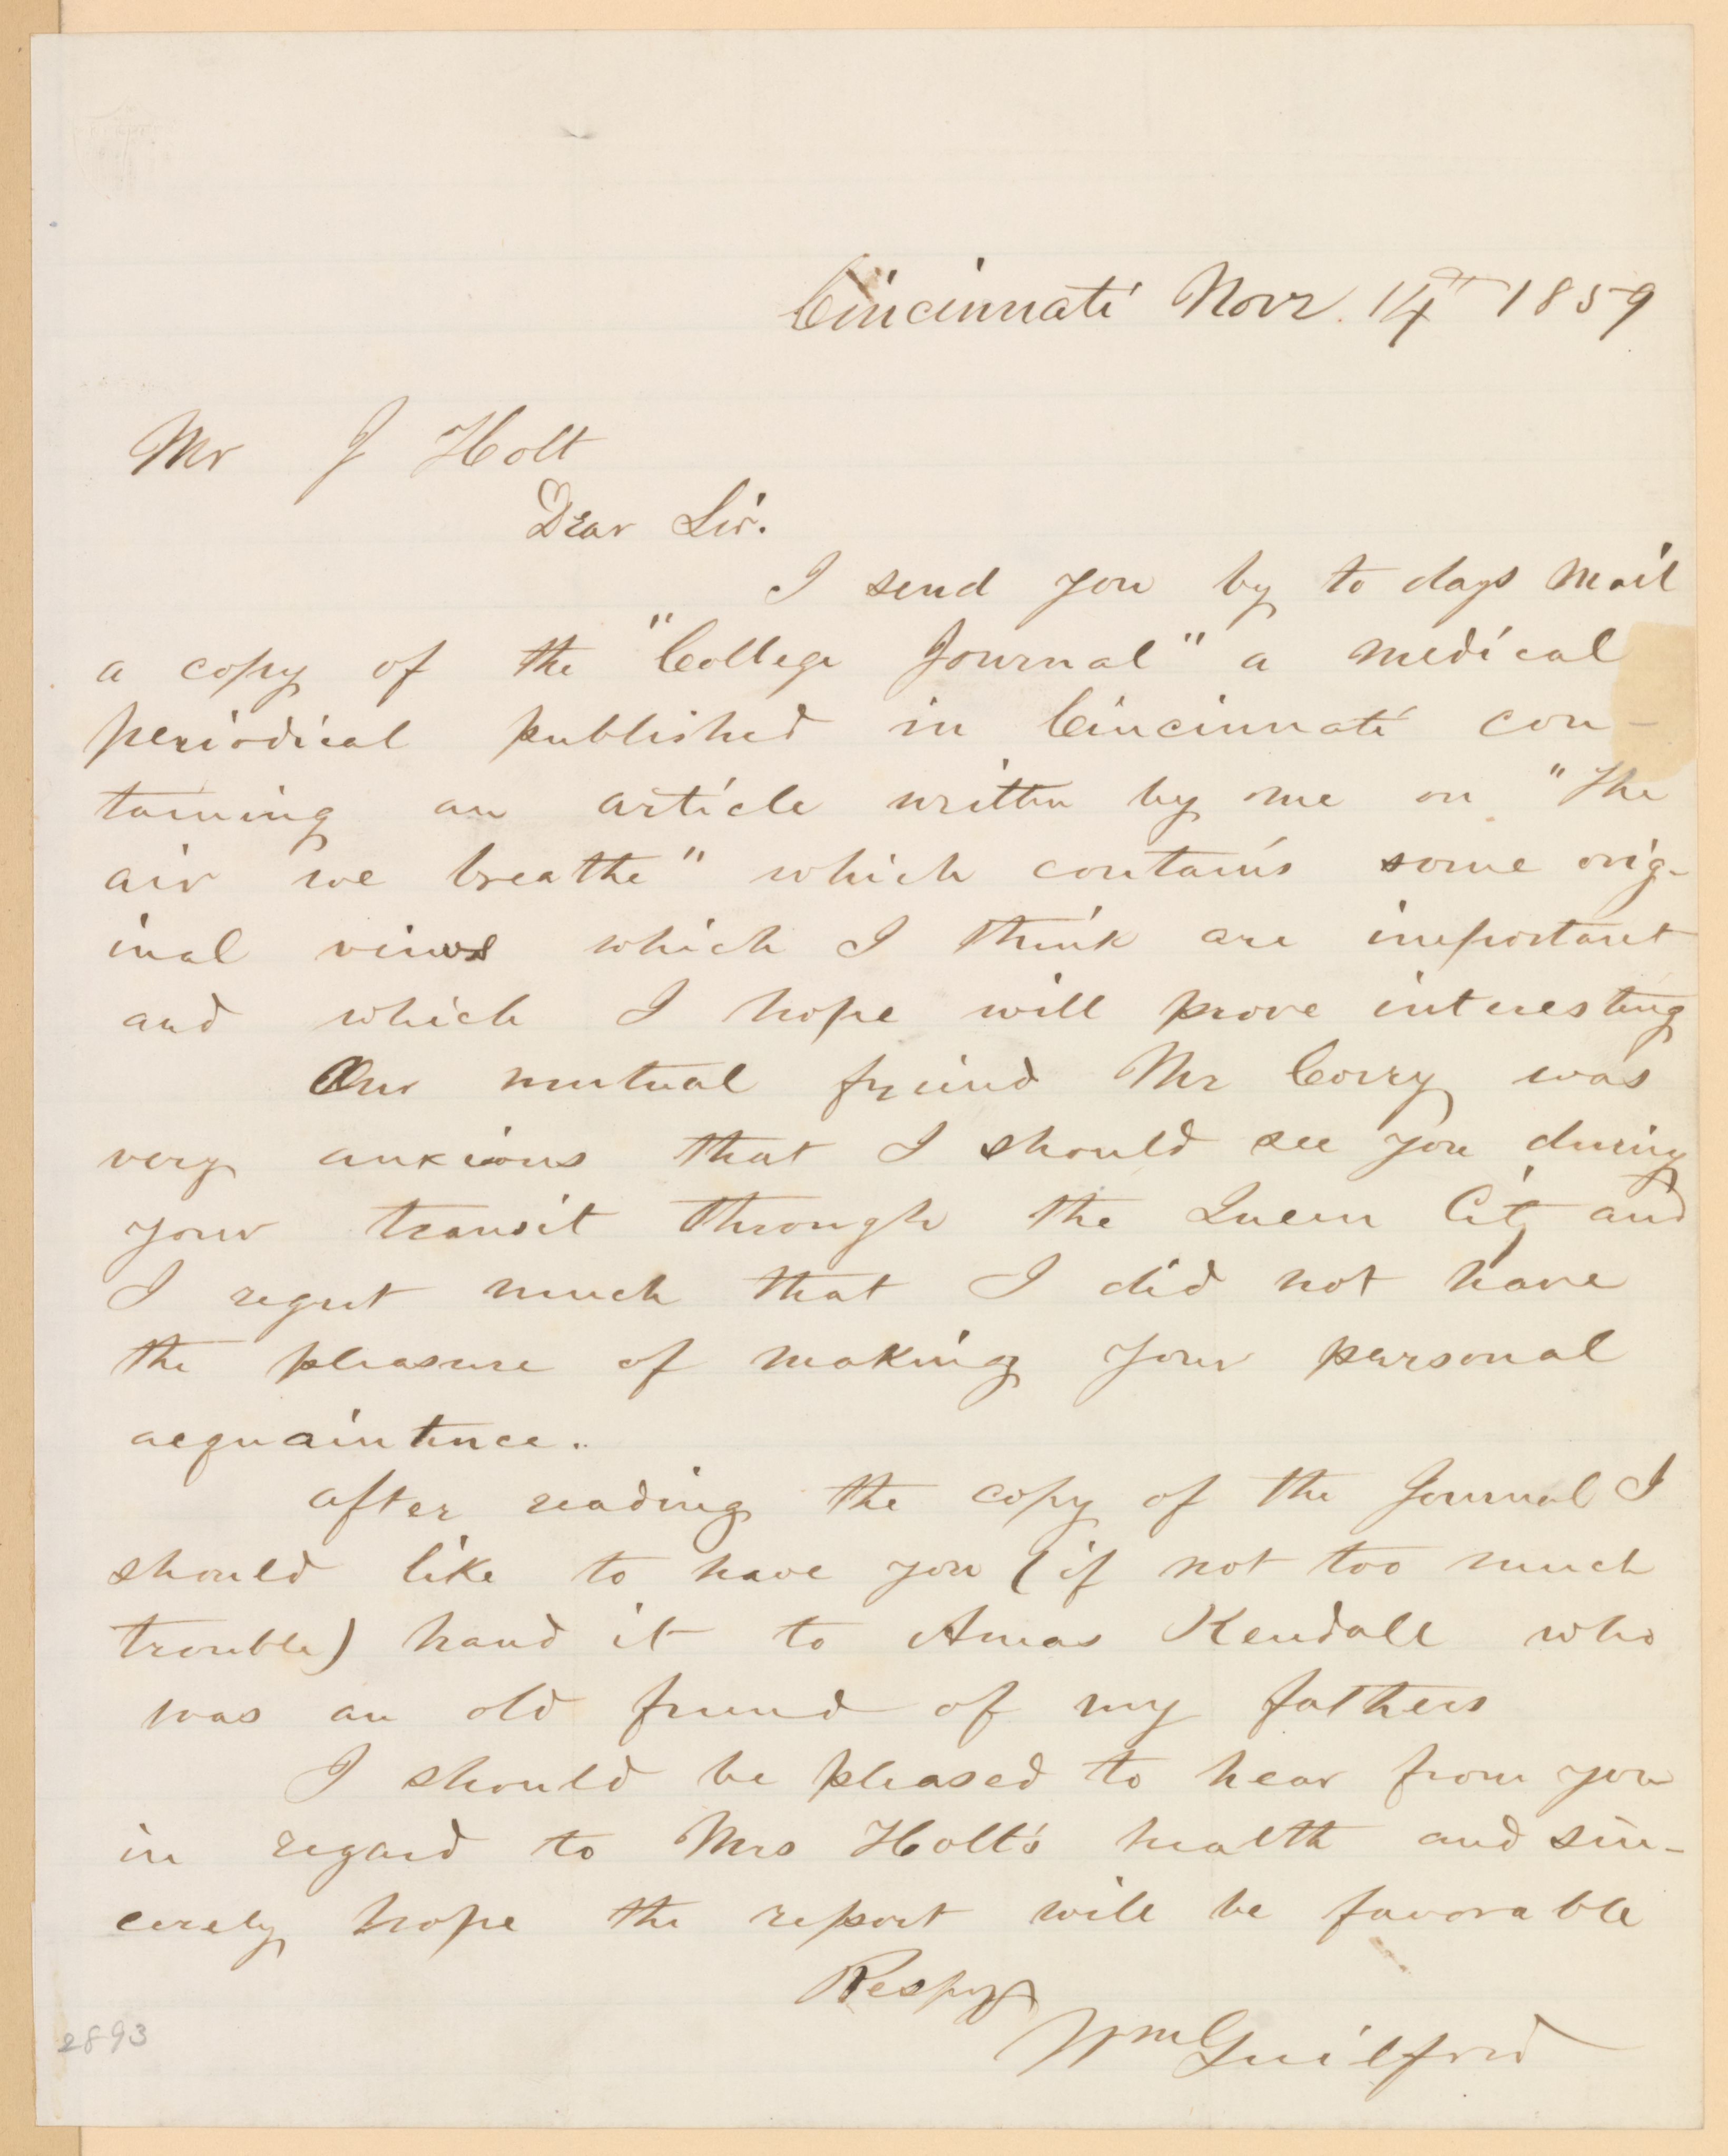 Cincinnati Novr. 14th 1859
Mr J Holt
Dear Sir.
I send you by to days mail
a copy of the "College Journal" a medical
periodical published in Cincinnati con-
taining an article written by me on "The
air we breathe" which contains some orig-
inal views which I think are important
and which I hope will prove interesting
Our mutual friend Mr Corry was
very anxious that I should see you during
your transit through the Queen City and
I regret much that I did not have
the pleasure of making your personal
acquaintence.
After reading the copy of the Journal I
should like to have you (if not too much
trouble) hand it to Amos Kendall who
was an old friend of my fathers
I should be pleased to hear from you
in regard to Mrs Holt's health and sin-
cerely hope the report will be favorable
Respy
Wm Guilford
2893